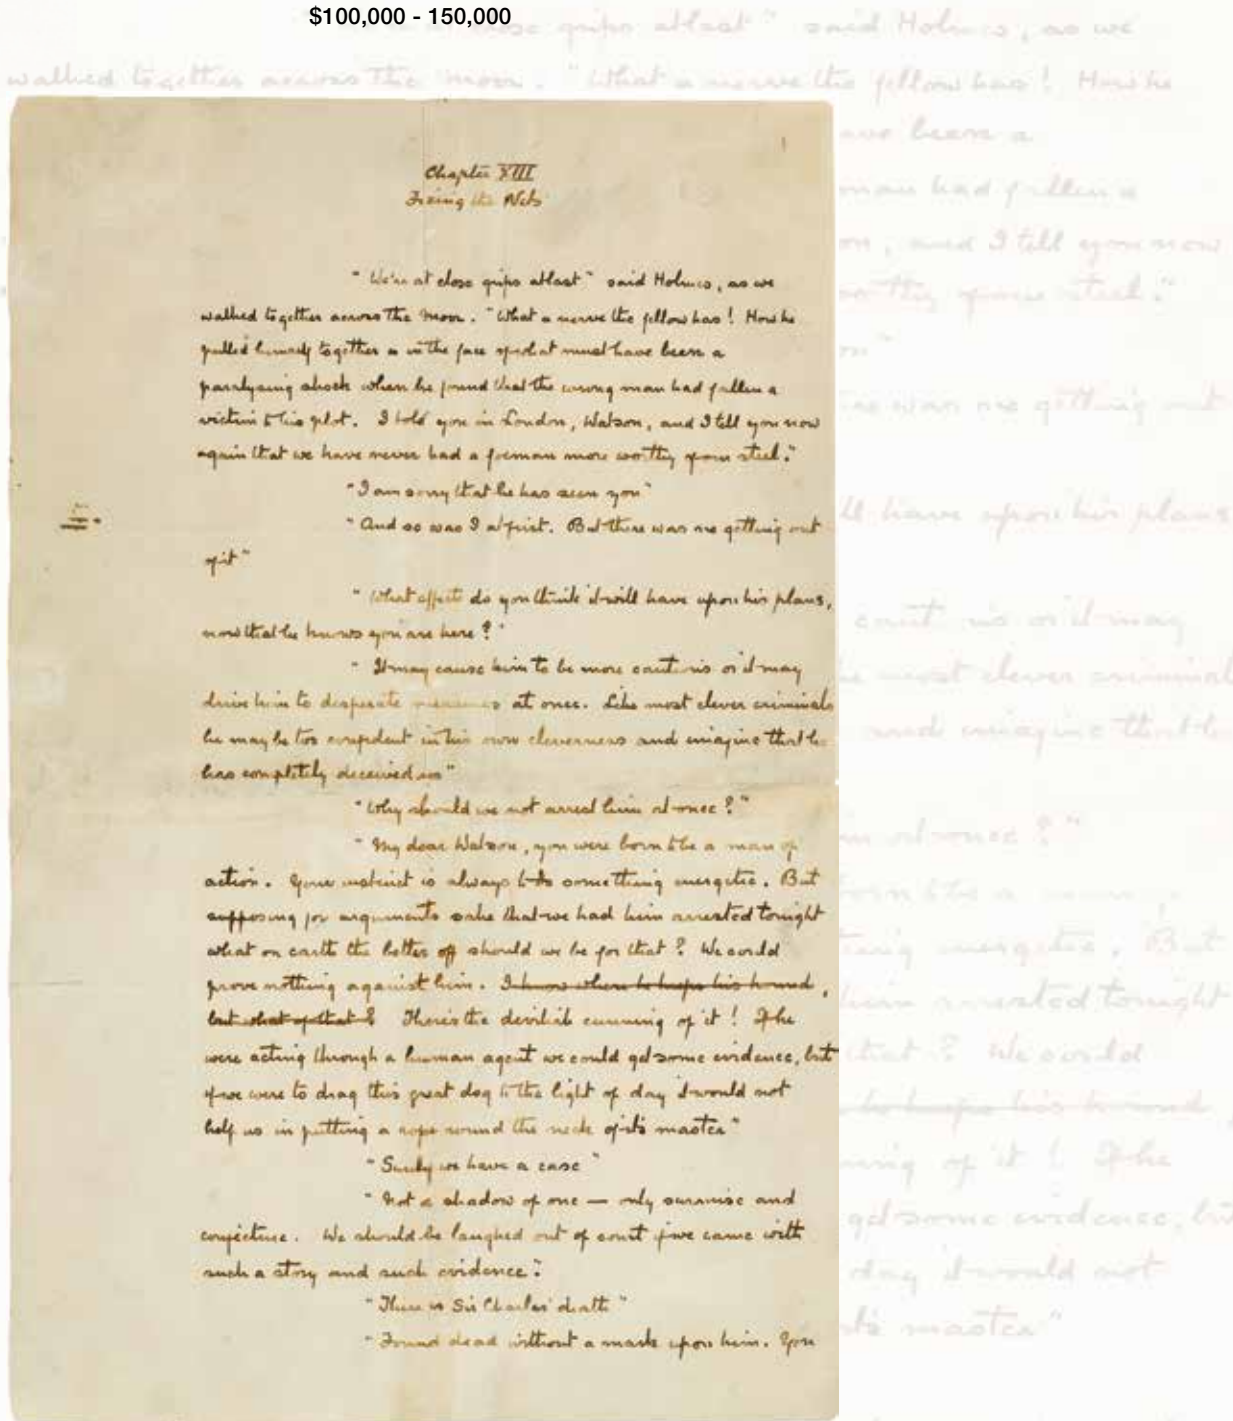 $100,000 - 150,000
Chapter XIII
Fixing the Nets
1
"We're at close grips at last" said Holmes, as we
walked together across the moor. "What a nerve the fellow has! How he
pulled himself together in the face of what must have been a
paralysing shock when he found that the wrong man had fallen a
victim to his plot. I told you in London, Watson, and I tell you now
again that we have never had a foeman more worthy of our steel."
"I am sorry that he has seen you"
"And so was I at first. But there was no getting out
of it"
"What effect do you think it will have upon his plans,
now that he knows you are here?"
"It may cause him to be more cautious or it may
drive him to desperate measures at once. Like most clever criminals
he may be too confident in his own cleverness and imagine that he
has completely deceived us"
"Why should we not arrest him at once?"
"My dear Watson, you were born to be a man of
action. Your instinct is always to do something energetic. But
supposing for arguments sake that we had him arrested tonight
what on earth the better off should we be for that? We could
prove nothing against him. I know where he keeps his hound,
but what of that? There's the devilish cunning of it! If he
were acting through a human agent we could get some evidence, but
if we were to drag this great dog to the light of day it would not
help us in putting a rope round the neck of its master"
"Surely we have a case"
"Not a shadow of one — only surmise and
conjecture. We should be laughed out of court if we came with
such a story and such evidence."
"There is Sir Charles' death"
"Found dead without a mark upon him. You